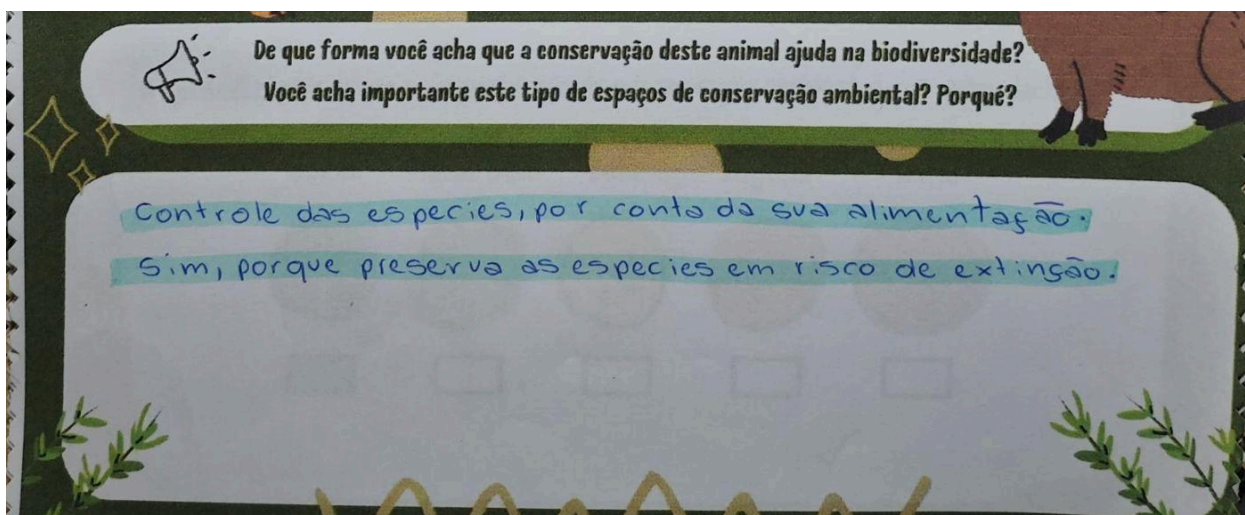 De que forma você acha que a conservação deste animal ajuda na biodiversidade?
Você acha importante este tipo de espaços de conservação ambiental? Porqué?
Controle das especies, por conta da sua alimentação.
Sim, porque preserva as especies em risco de extinsão.